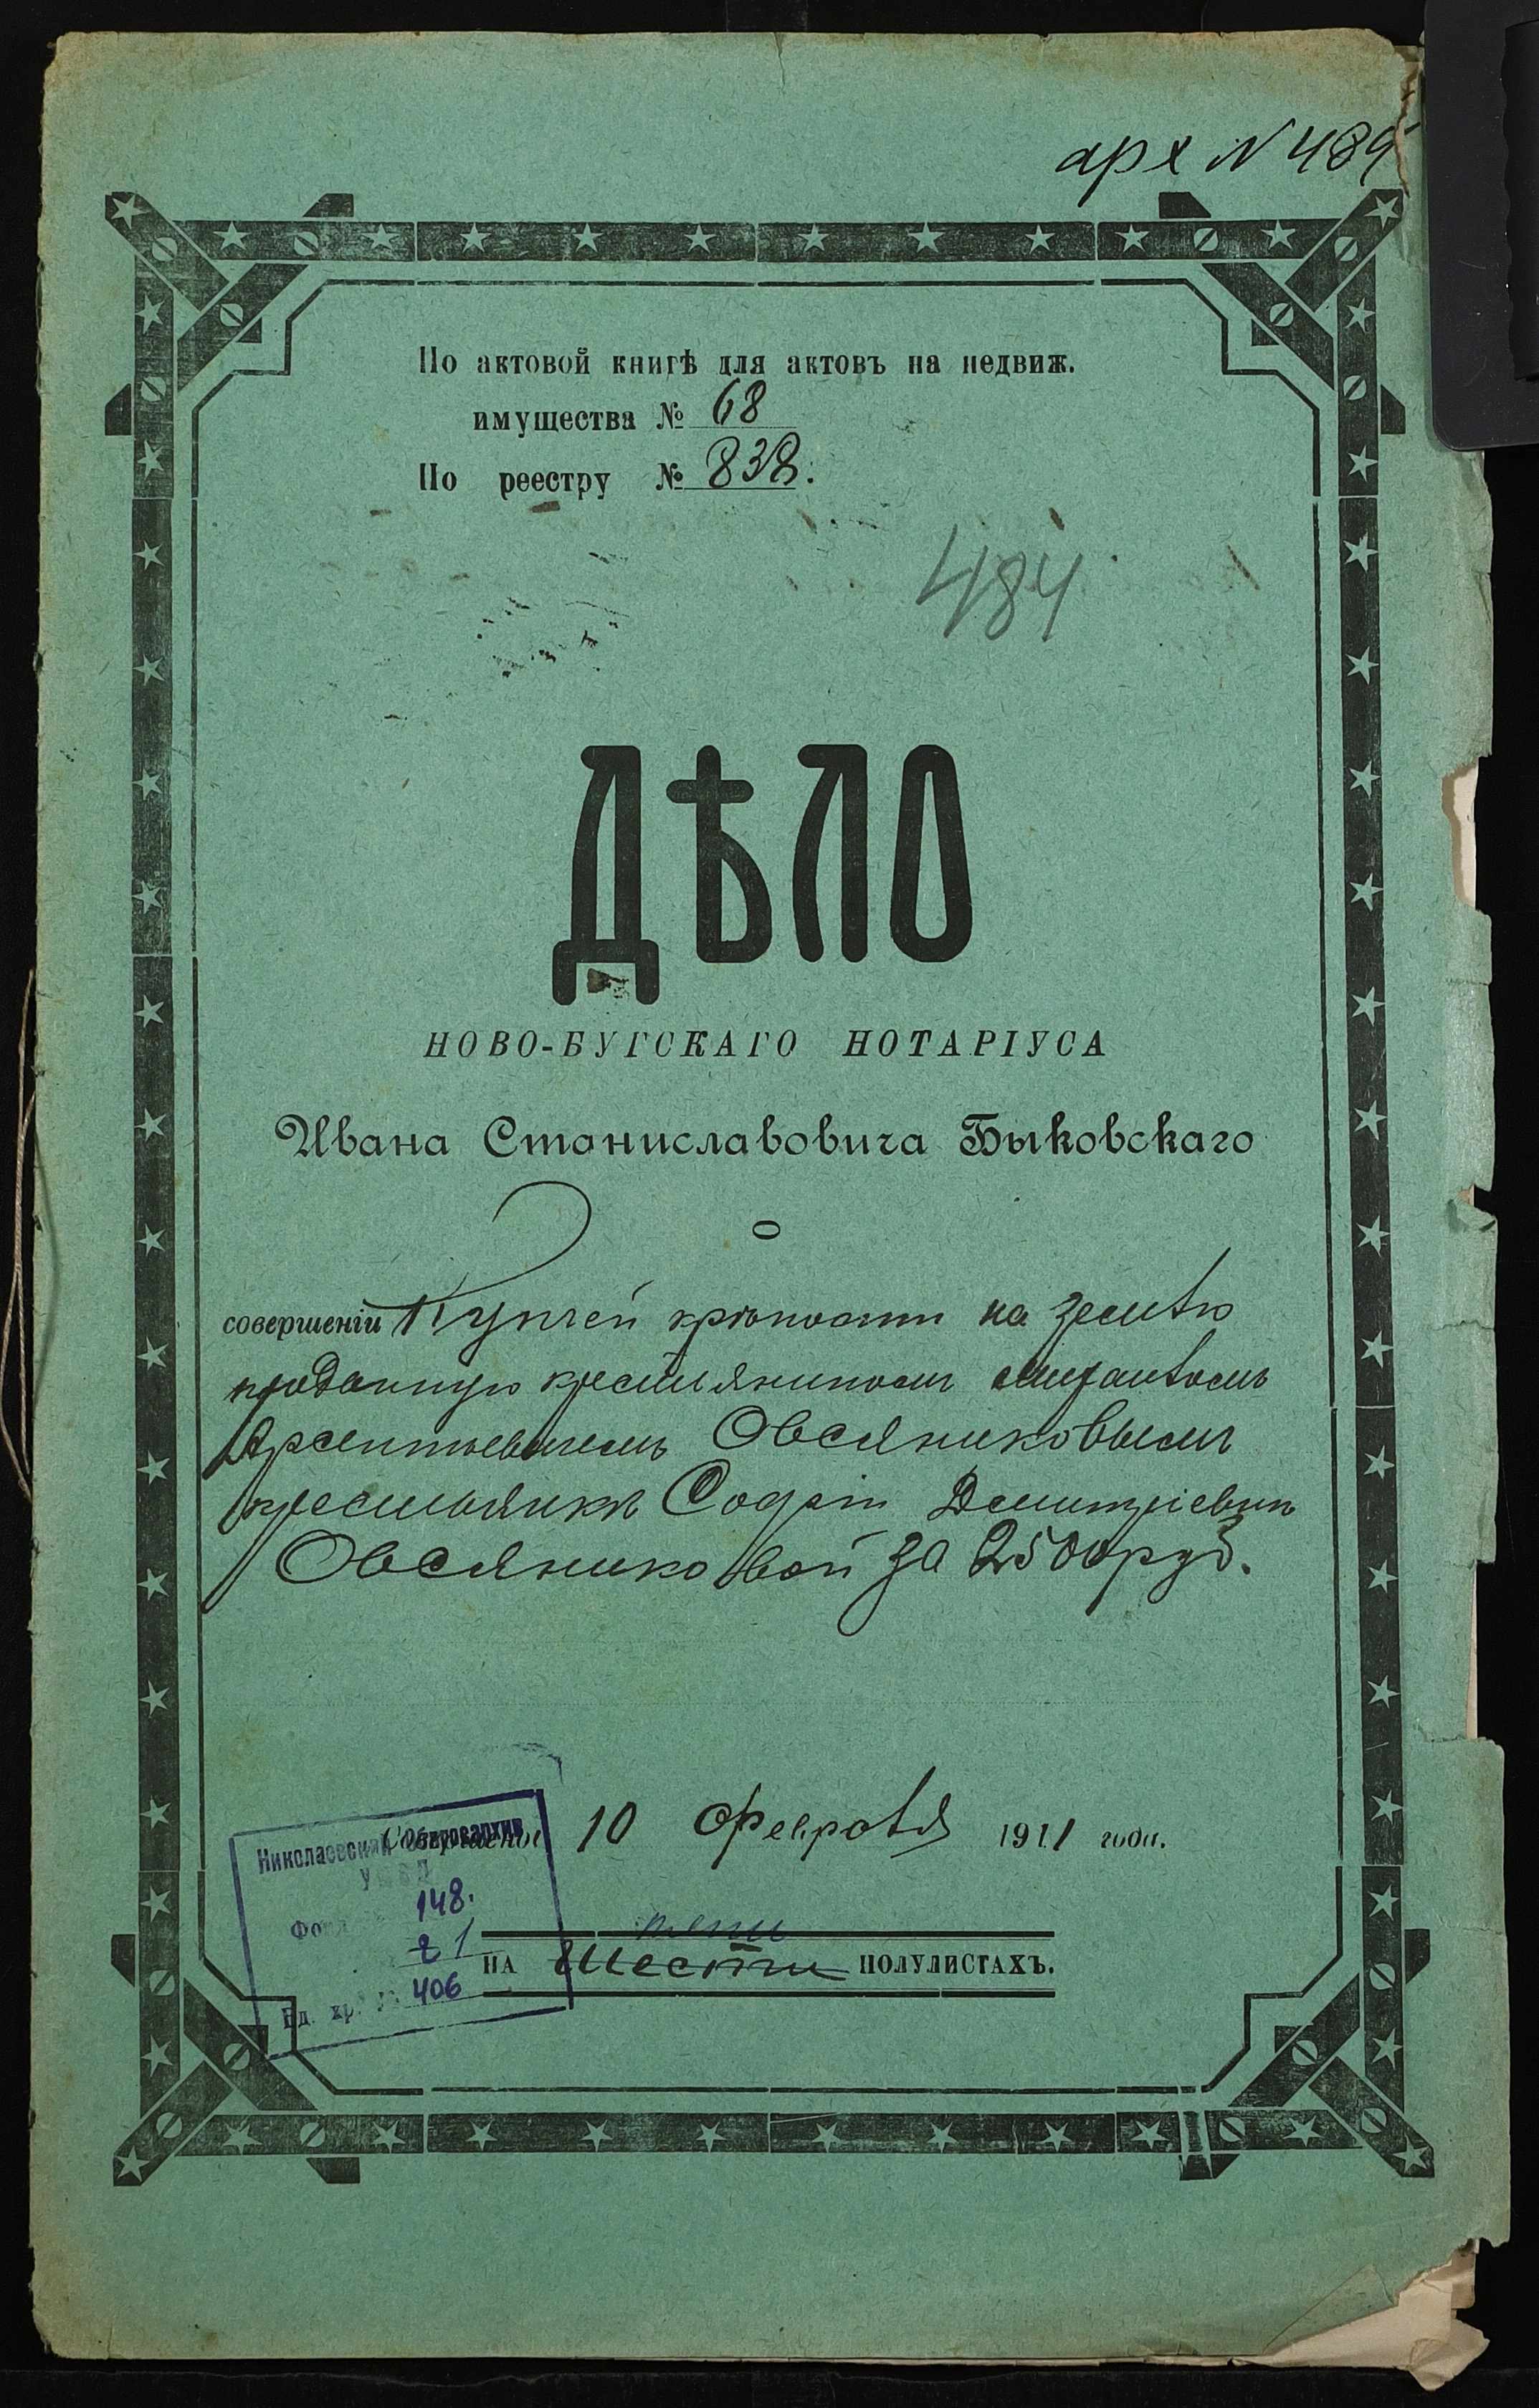 арх N 489
По актовой книгѣ для актовъ на недвиж.
имущества № 68
По реестру № 838.
484
ДѢЛО
НОВО-БУГСКАГО НОТАРІУСА
Ивана Станиславовича Быковскаго
О
совершеніи Купчей крѣпости на землю
проданную крестьяниномъ
Арсентьевичемъ Овсяниковымъ
крестьянкѣ Софіи Дмитріевнѣ
Овсяниковой за 2500 руб.
Совершено 10 Февраля 1911 года.
Николаевский Облгосархив
148.
1
Ед. хр. № 406
НА шести ПОЛУЛИСТАХЪ.